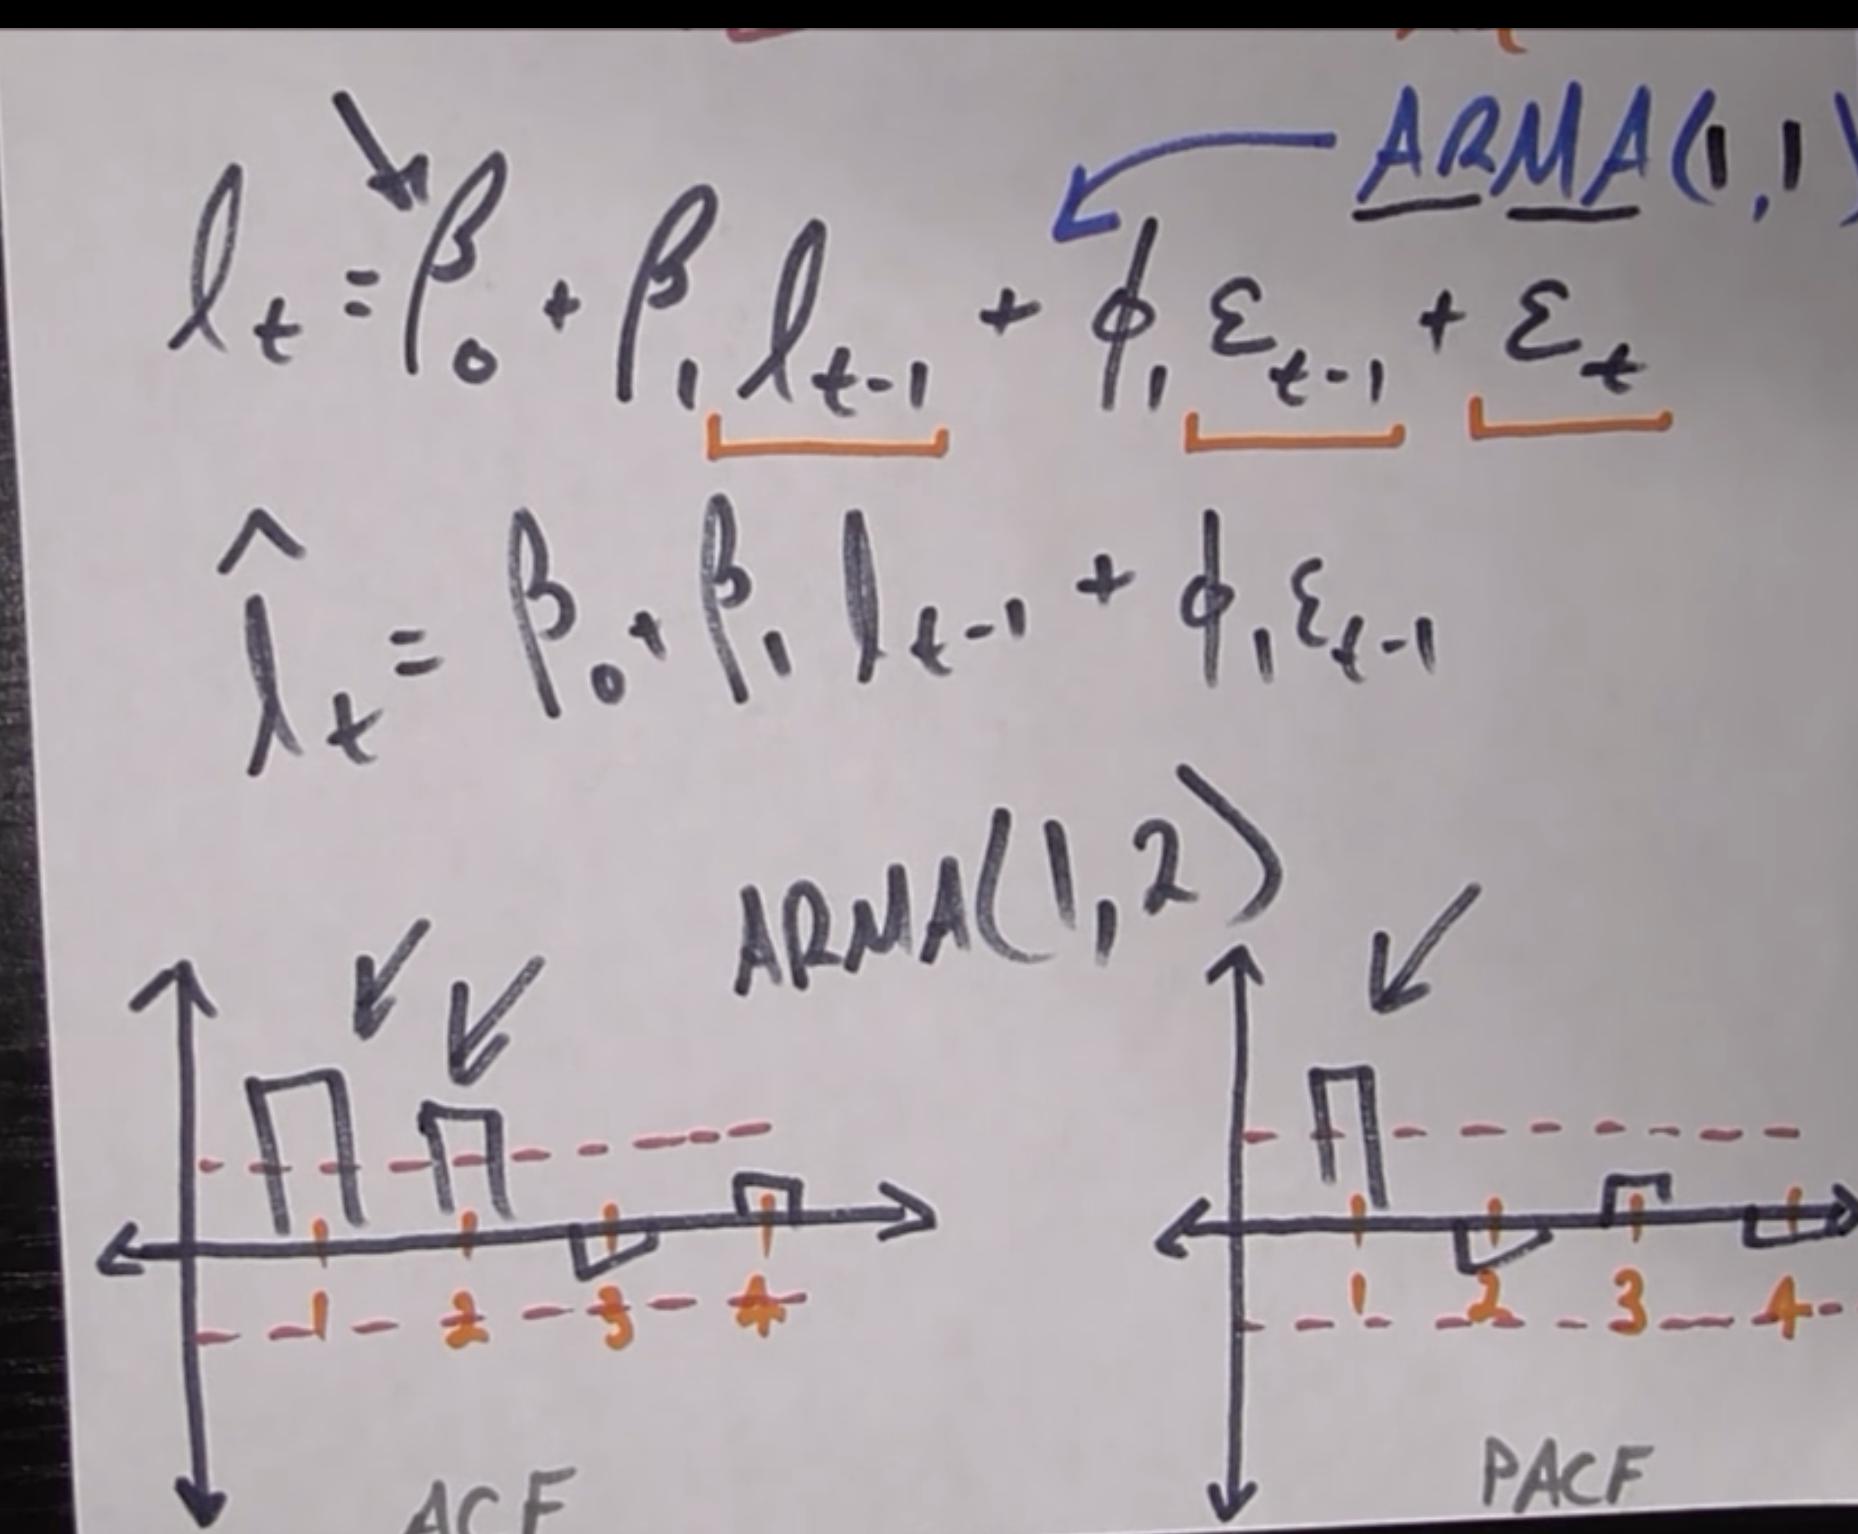 ARMA(1,1)
lₜ = β₀ + β₁ lₜ₋₁ + ϕ₁ εₜ₋₁ + εₜ
l̂ₜ = β₀ + β₁ lₜ₋₁ + ϕ₁ εₜ₋₁
ARMA(1,2)
1 2 3 4
1 2 3 4
ACF
PACF